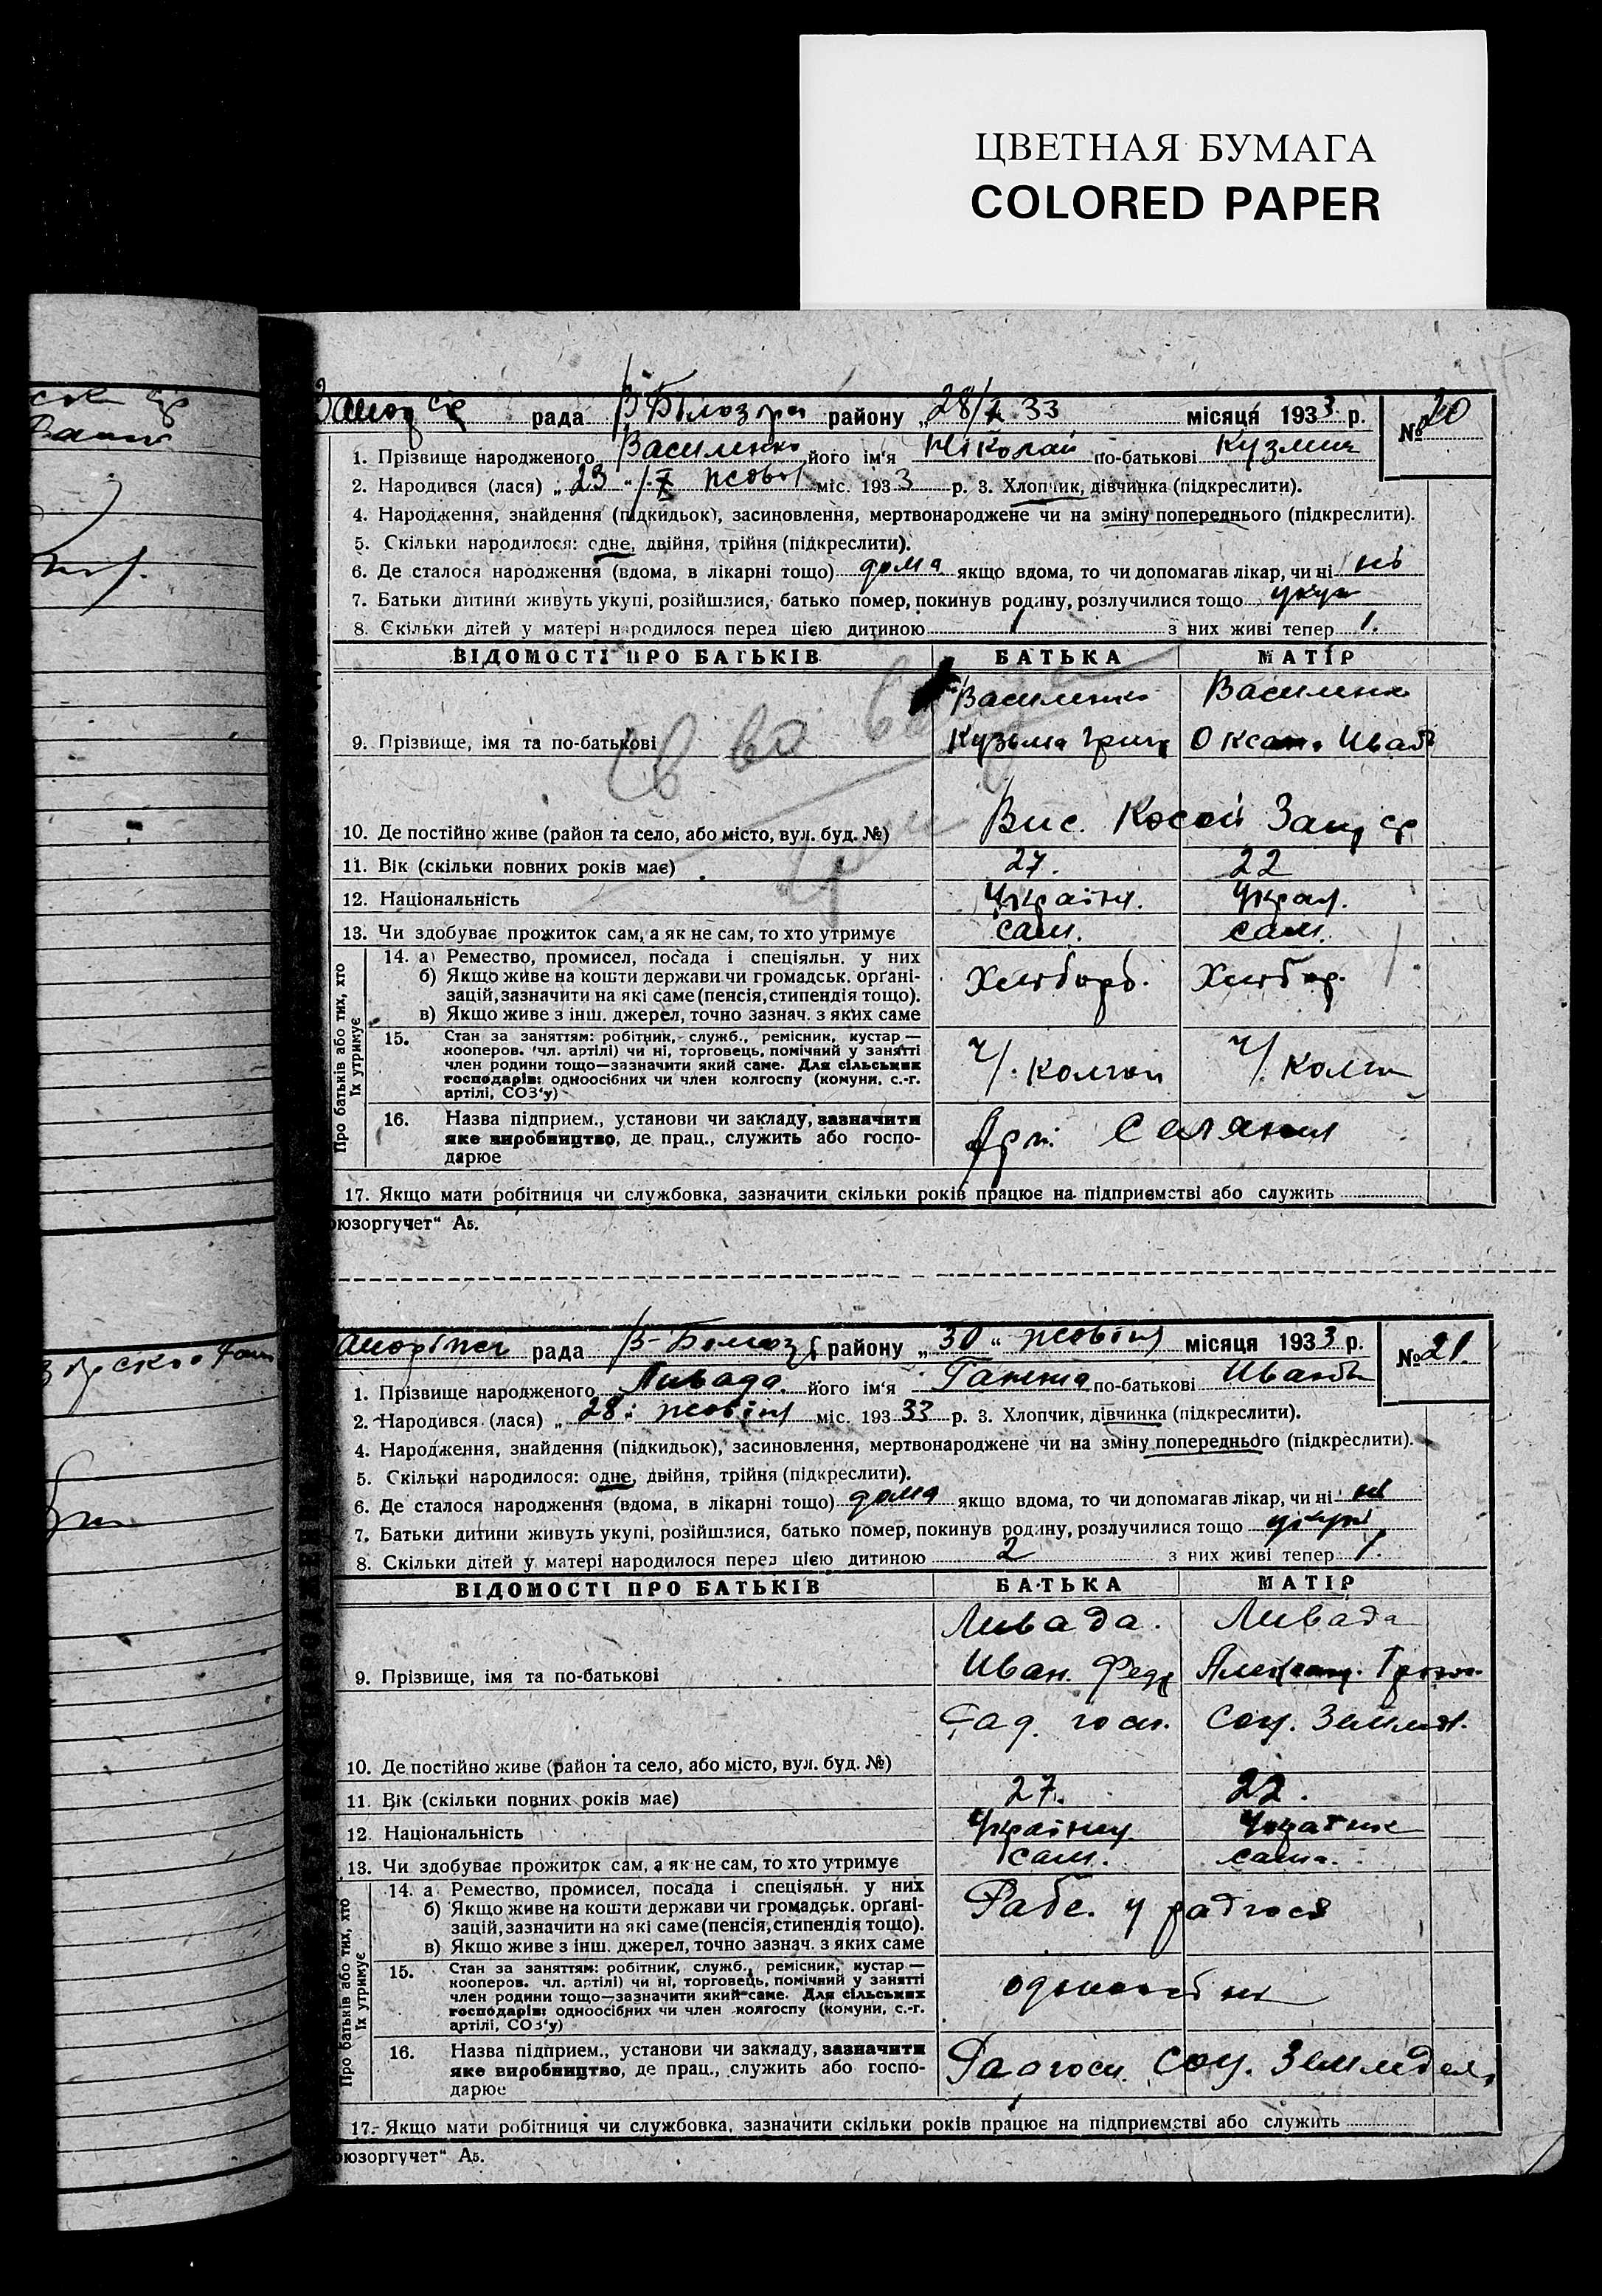 ЦВЕТНАЯ БУМАГА
COLORED PAPER
рада В-Білозірсь району „28/X 33 місяця 1933 р. № 20
1. Прізвище народженого Василенко його ім'я Ніколай по-батькові Кузмич
2. Народився (лася) „23“ /X жовт міс. 1933 р. 3. Хлопчик, дівчинка (підкреслити).
4. Народження, знайдення (підкидьок), засиновлення, мертвонароджене чи на зміну попереднього (підкреслити).
5. Скільки народилося: одне, двійня, трійня (підкреслити).
6. Де сталося народження (вдома, в лікарні тощо) дома якщо вдома, то чи допомагав лікар, чи ні ні
7. Батьки дитини живуть укупі, розійшлися, батько помер, покинув родину, розлучилися тощо укуп
8. Скільки дітей у матері народилося перед цією дитиною 1 з них живі тепер 1.
ВІДОМОСТІ ПРО БАТЬКІВ БАТЬКА МАТІР
Василенко Василенко
9. Прізвище, імя та по-батькові Кузьма Григ Оксана Иван
10. Де постійно живе (район та село, або місто, вул. буд. №) Вис. Косой
11. Вік (скільки повних років має) 27. 22
12. Національність Україн. Украл.
13. Чи здобуває прожиток сам, а як не сам, то хто утримує сам. сам.
Про батьків або тих, хто їх утримує
14. а) Ремество, промисел, посада і спеціяльн. у них
б) Якщо живе на кошти держави чи громадськ. органі-
зацій, зазначити на які саме (пенсія, стипендія тощо).
в) Якщо живе з інш. джерел, точно зазнач. з яких саме
Хлібороб. Хлібор.
15. Стан за заняттям: робітник, служб., ремісник, кустар —
кооперов. (чл. артілі) чи ні, торговець, помічний у занятті
член родини тощо—зазначити який саме. Для сільських
господарів: одноосібних чи член колгоспу (комуни, с.-г.
артілі, СОЗ'у)
ч/. колгос ч/. колг
16. Назва підприєм., установи чи закладу, зазначити
яке виробництво, де прац., служить або госпо-
дарює
Арт. Селянин
17. Якщо мати робітниця чи службовка, зазначити скільки років працює на підприємстві або служить
юзоргучет“ Аб.
рада В-Білоз району „30“ жовтня місяця 1933 р. № 21.
1. Прізвище народженого Ливада його ім'я Ганна по-батькові Иванов
2. Народився (лася) „28“ жовтня міс. 193 33 р. 3. Хлопчик, дівчинка (підкреслити).
4. Народження, знайдення (підкидьок), засиновлення, мертвонароджене чи на зміну попереднього (підкреслити).
5. Скільки народилося: одне, двійня, трійня (підкреслити).
6. Де сталося народження (вдома, в лікарні тощо) дома якщо вдома, то чи допомагав лікар, чи ні ні
7. Батьки дитини живуть укупі, розійшлися, батько помер, покинув родину, розлучилися тощо укупі
8. Скільки дітей у матері народилося перед цією дитиною 2 з них живі тепер 1.
ВІДОМОСТІ ПРО БАТЬКІВ БАТЬКА МАТІР
Ливада. Ливада
9. Прізвище, імя та по-батькові Иван. Фед
Рад. госп. Соц. Землед.
10. Де постійно живе (район та село, або місто, вул. буд. №)
11. Вік (скільки повних років має) 27. 22.
12. Національність Українц Українк
13. Чи здобуває прожиток сам, а як не сам, то хто утримує сам. сама.
Про батьків або тих, хто їх утримує
14. а Ремество, промисел, посада і спеціяльн. у них
б) Якщо живе на кошти держави чи громадськ. органі-
зацій, зазначити на які саме (пенсія, стипендія тощо).
в) Якщо живе з інш. джерел, точно зазнач. з яких саме
Рабс. у радгосп
15. Стан за заняттям: робітник, служб., ремісник, кустар —
кооперов. чл. артілі) чи ні, торговець, помічний у занятті
член родини тощо—зазначити який саме. Для сільських
господарів: одноосібних чи член колгоспу (комуни, с.-г.
артілі, СОЗ'у)
одноосібник
16. Назва підприєм., установи чи закладу, зазначити
яке виробництво, де прац., служить або госпо-
дарює
Радгосп. Соц. Земледел,
17. Якщо мати робітниця чи службовка, зазначити скільки років працює на підприємстві або служить
юзоргучет“ Аб.